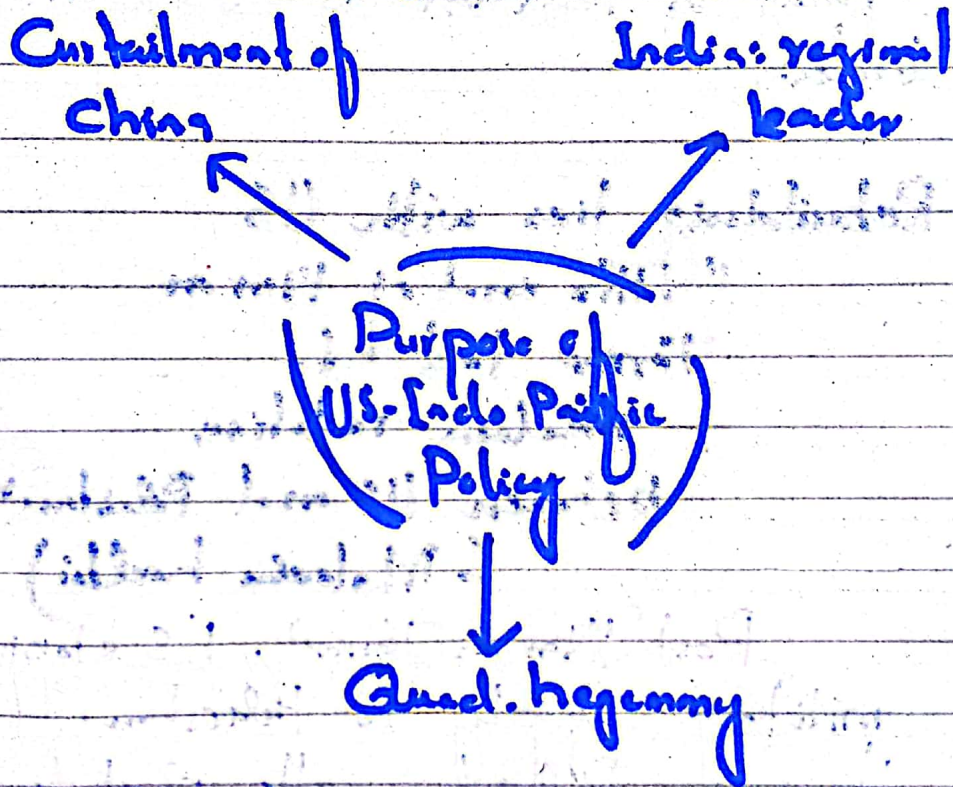 Curtailment of
China
India: regional
leader
Purpose of
US-Indo Pacific
Policy
Quad. hegemony